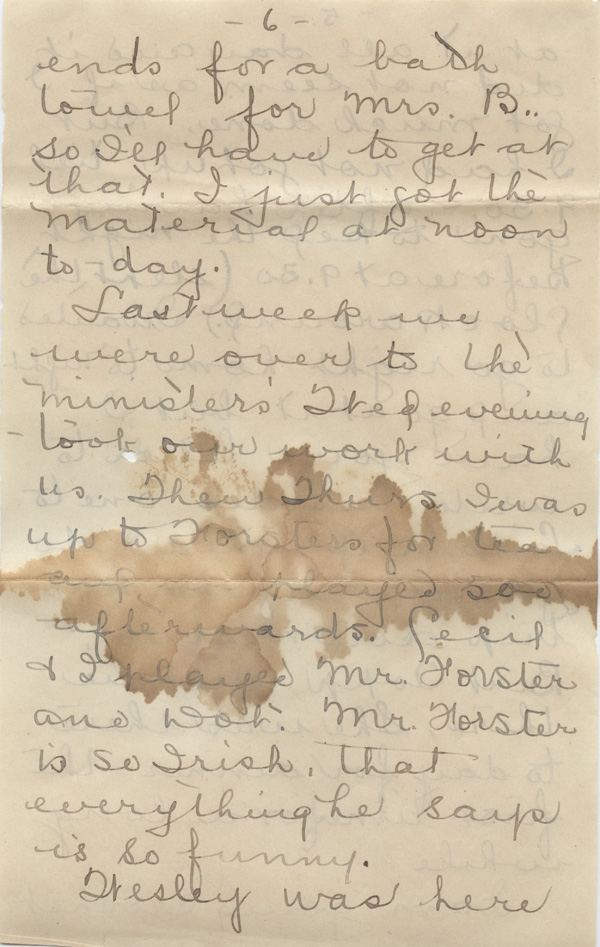 - 6 -
ends for a bath
towel for Mrs. B..
so I'll have to get at
that. I just got the
material at noon
to-day.
Last week we
were over to the
ministers' Wed evening
- took our work with
us. Then Thurs I was
up to Forsters for tea
and we played 500
afterwards. Cecil
& I played Mr. Forster
and Dot. Mr. Forster
is so Irish, that
everything he says
is so funny.
Wesley was here